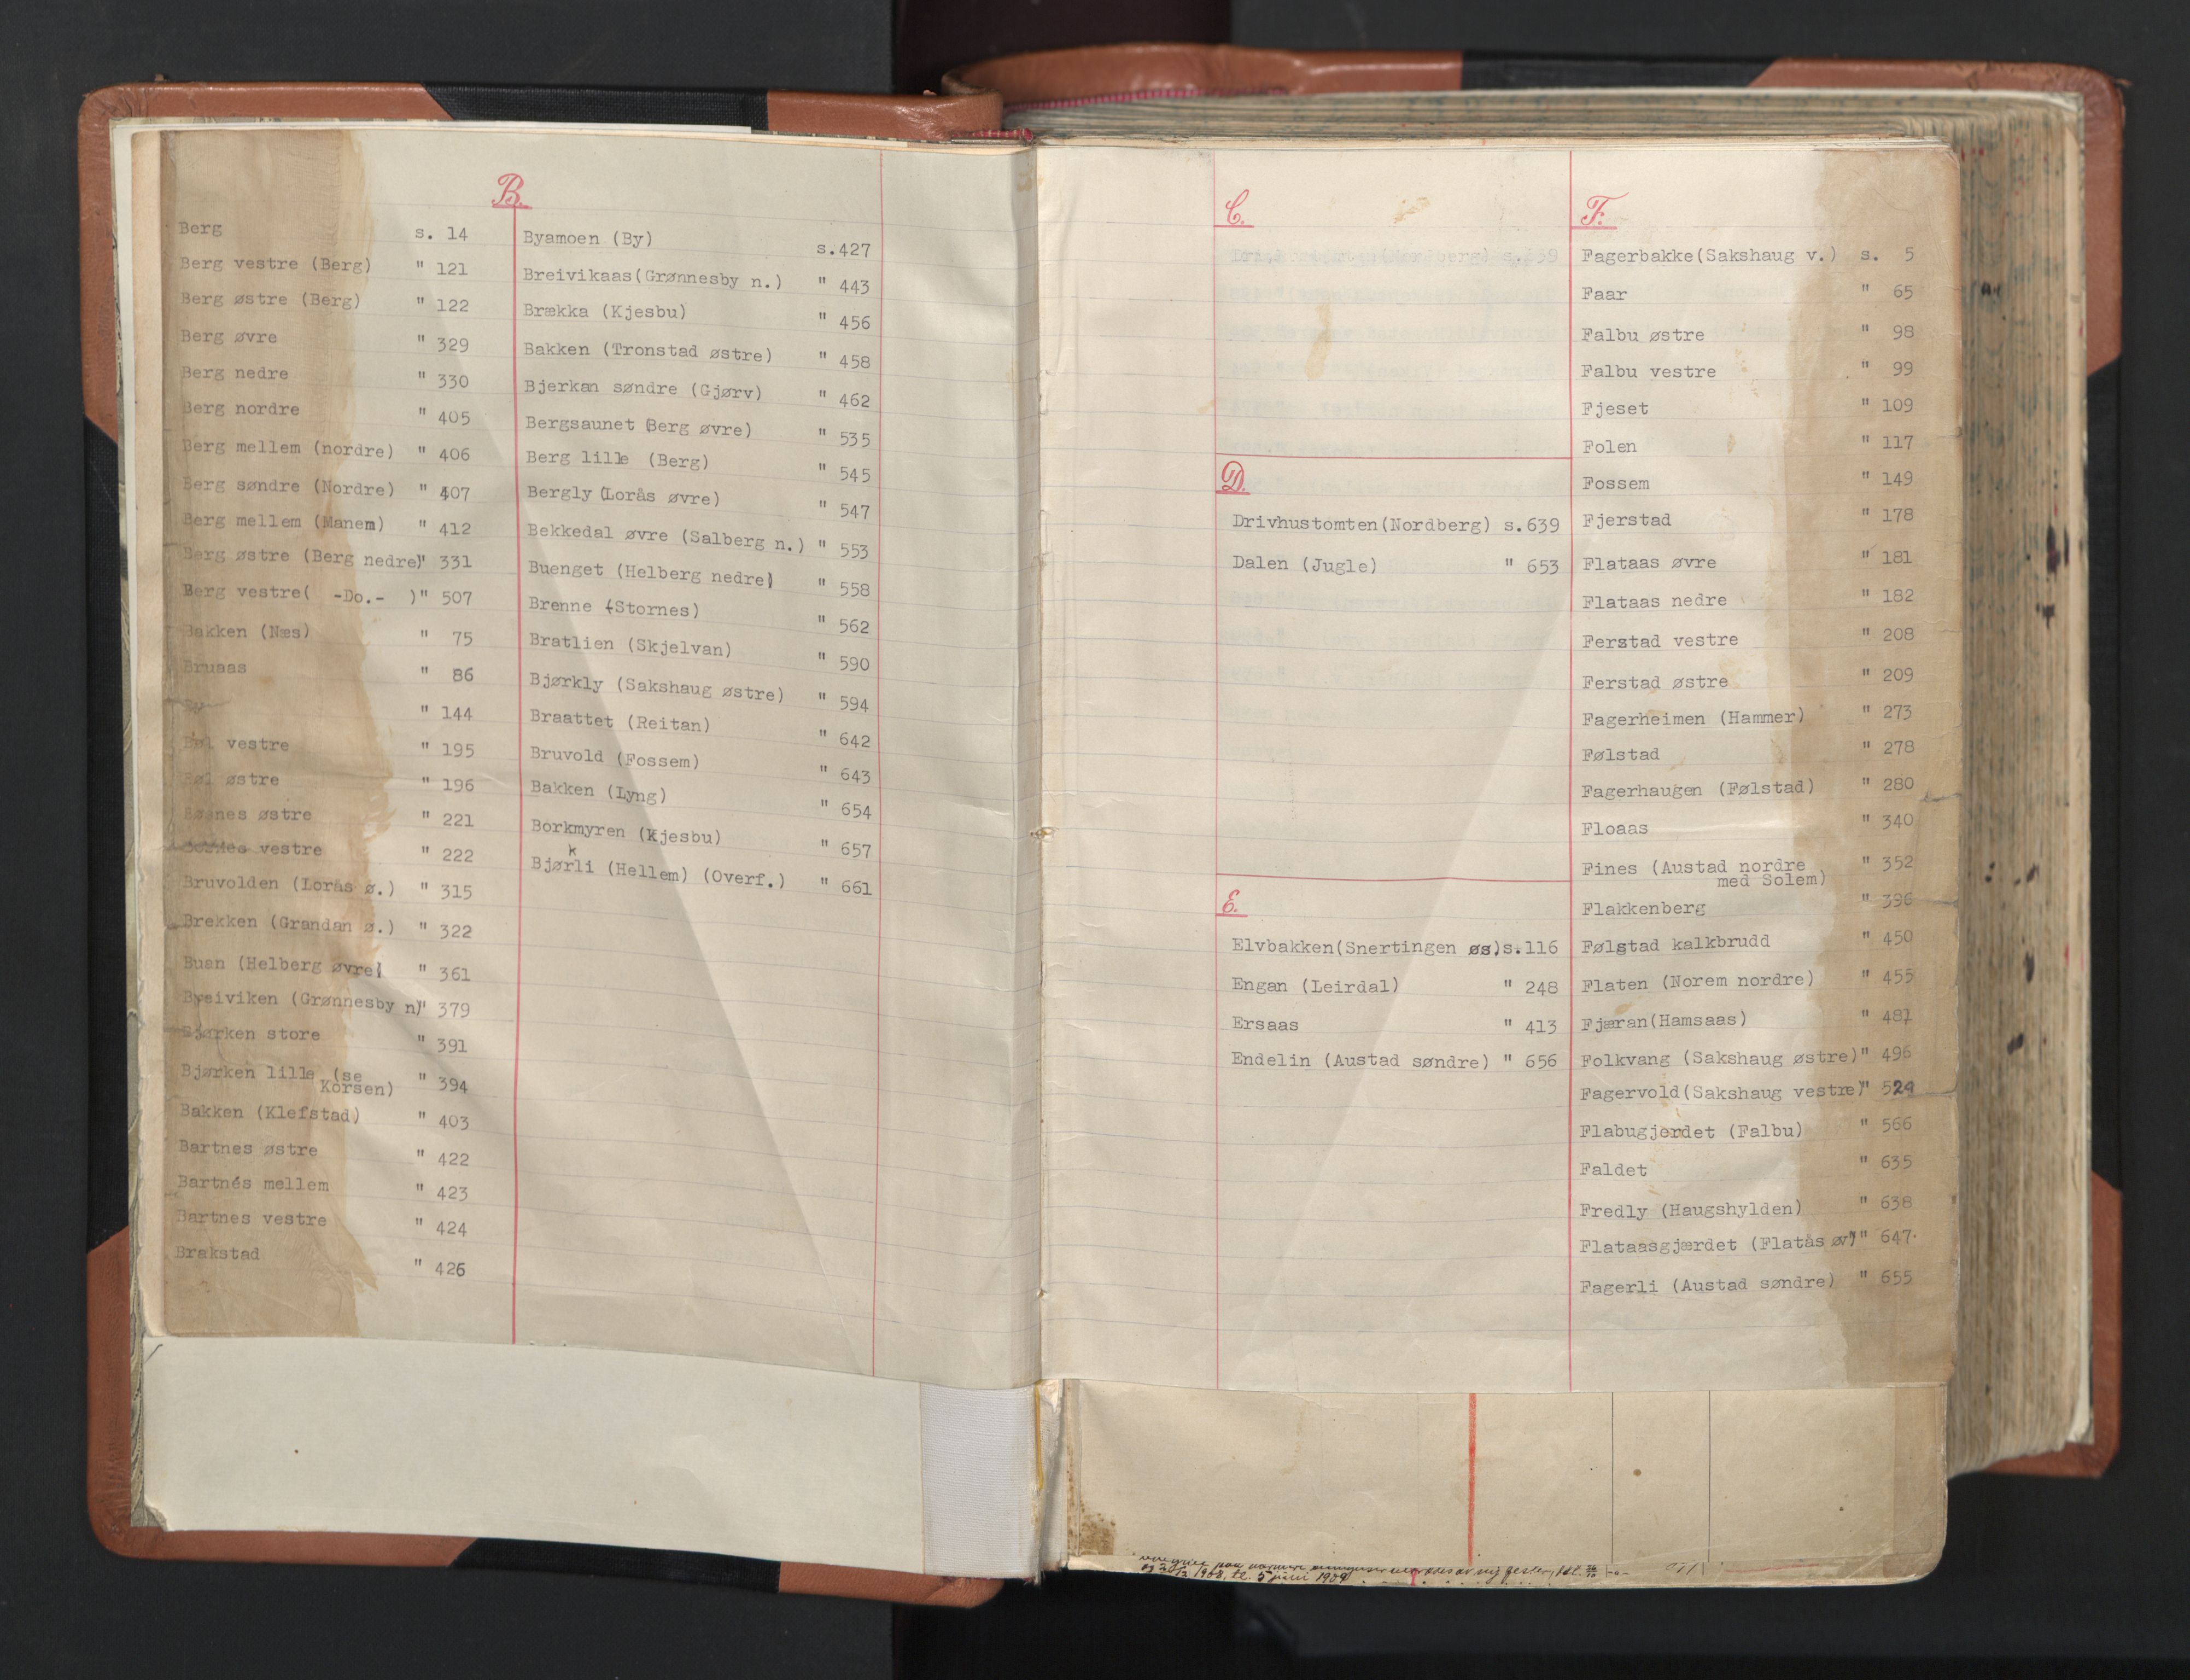 B.
Berg s. 14
Berg vestre (Berg) " 121
Berg østre (Berg) " 122
Berg øvre " 329
Berg nedre " 330
Berg nordre " 405
Berg mellem (nordre) " 406
Berg søndre (Nordre) " 407
Berg mellem (Manem) " 412
Berg østre (Berg nedre)" 331
Berg vestre( -Do.- )" 507
Bakken (Næs) " 75
Bruaas " 86
By " 144
Bøl vestre " 195
Bøl østre " 196
Bøsnes østre " 221
vestre " 222
Bruvolden (Lorås ø.) " 315
Brekken (Grandan ø.) " 322
Buan (Helberg øvre) " 361
Breiviken (Grønnesby n)" 379
Bjørken store " 391
Bjørken lille (se
Korsen) " 394
Bakken (Klefstad) " 403
Bartnes østre " 422
Bartnes mellem " 423
Bartnes vestre " 424
Brakstad " 426
Byamoen (By) s.427
Breivikaas(Grønnesby n.) " 443
Brækka (Kjesbu) " 456
Bakken (Tronstad østre) " 458
Bjerkan søndre (Gjørv) " 462
Bergsaunet (Berg øvre) " 535
Berg lille (Berg) " 545
Bergly (Lorås øvre) " 547
Bekkedal øvre (Salberg n.) " 553
Buenget (Helberg nedre) " 558
Brenne (Stornes) " 562
Bratlien (Skjelvan) " 590
Bjørkly (Sakshaug østre) " 594
Braattet (Reitan) " 642
Bruvold (Fossem) " 643
Bakken (Lyng) " 654
Borkmyren (Kjesbu) " 657
k
Bjørli (Hellem) (Overf.) " 661
C.
D.
Drivhustomten(Nordberg) s.639
Dalen (Jugle) " 653
E.
Elvbakken(Snertingen øs)s.116
Engan (Leirdal) " 248
Ersaas " 413
Endelin (Austad søndre) " 656
F.
Fagerbakke(Sakshaug v.) s. 5
Faar " 65
Falbu østre " 98
Falbu vestre " 99
Fjeset " 109
Folen " 117
Fossem " 149
Fjerstad " 178
Flataas øvre " 181
Flataas nedre " 182
Ferstad vestre " 208
Ferstad østre " 209
Fagerheimen (Hammer) " 273
Følstad " 278
Fagerhaugen (Følstad) " 280
Floaas " 340
Fines (Austad nordre " 352
med Solem)
Flakkenberg " 396
Følstad kalkbrudd " 450
Flaten (Norem nordre) " 455
Fjæran(Hamsaas) " 481
Folkvang (Sakshaug østre)" 496
Fagervold(Sakshaug vestre)" 524
Flabugjerdet (Falbu) " 566
Faldet " 635
Fredly (Haugshylden) " 638
Flataasgjærdet (Flatås øv)" 647.
Fagerli (Austad søndre) " 655
1908 1909